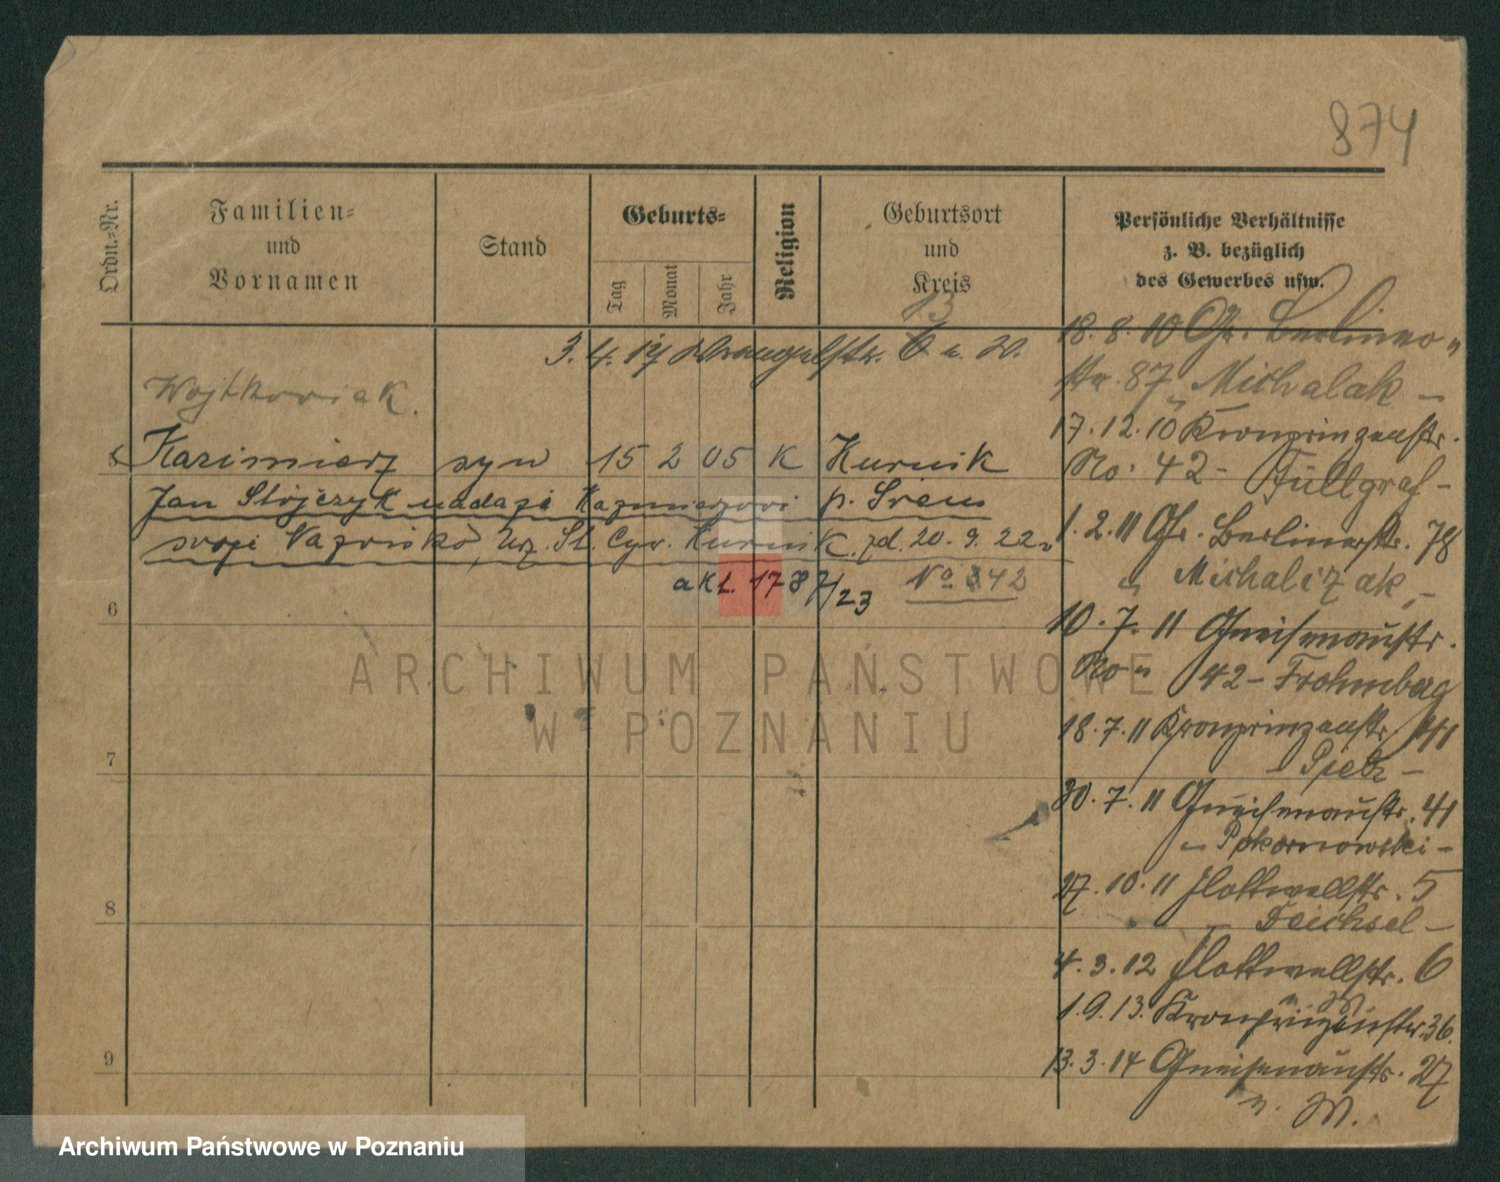 874
Ordn.-Nr.
Familien-
und
Vornamen
Stand
Geburts-
Tag
Monat
Jahr
Religion
Geburtsort
und
Kreis
Persönliche Verhältnisse
z. B. bezüglich
des Gewerbes usw.
13
3.4.19 Wrangelstr. 6 n. W.
Wojtkowiak.
5 Kazimierz syn 15 2 05 K Kurnik
Jan Stójczyk nadaje Kazmierzowi p. Śrem
swoje Nazwisko, Urz. St. Cyw. Kurnik. zd. 20. 9. 22
akt. 1787/23 No 342
6
7
8
9
18. 8. 10 Gr. Berliner
str. 87 Michalak -
17. 12. 10 Kronprinzenstr.
No. 42 - Füllgraf -
1. 2. 11 Gr. Berlinerstr. 78
Michalczak -
10. 7. 11 Gneisenaustr.
No 42 - Frohmberg
18. 7. 11 Kronprinzenstr.
30. 7. 11 Gneisenaustr. 41
- Pokornowski -
27. 10. 11 Flottwellstr. 5
- Teichsel -
4. 3. 12 Flottwellstr. 6
n. W.
1. 9. 13. Kronprinzenstr. 36.
13. 3. 14 Gneisenaustr. 27
n. W.
ARCHIWUM PAŃSTWOWE
W POZNANIU
Archiwum Państwowe w Poznaniu